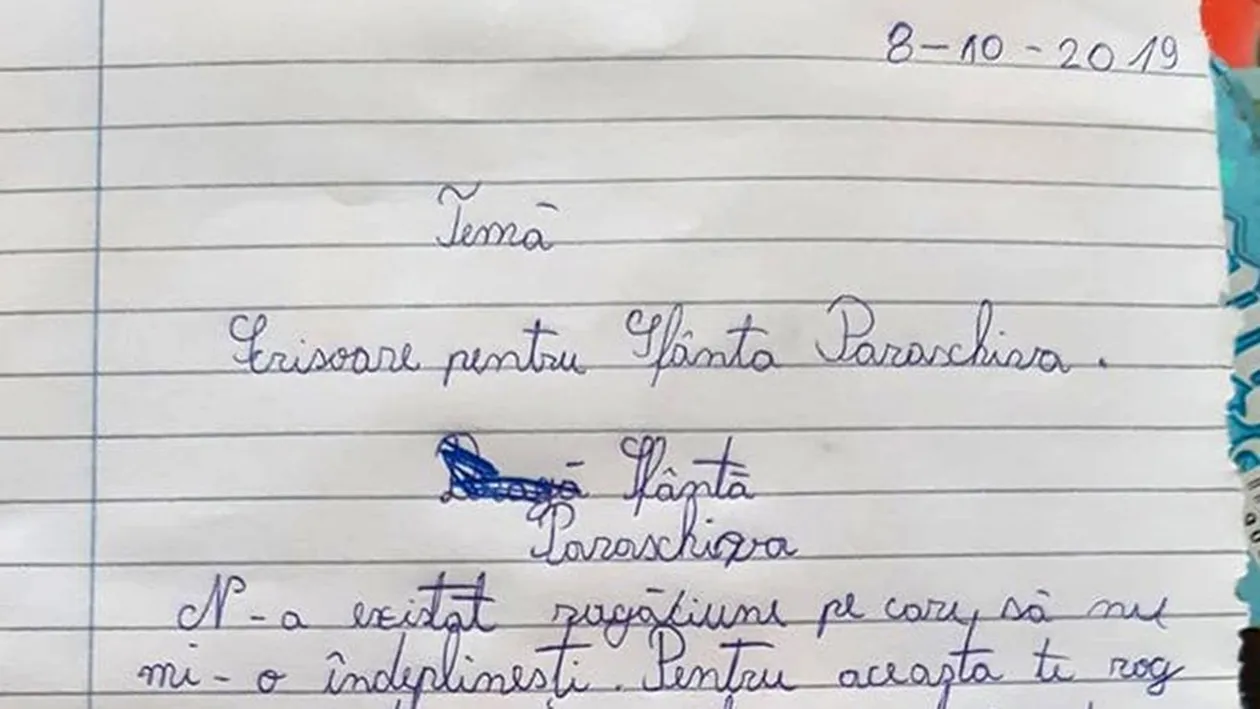 8-10-2019
Temă
Scrisoare pentru Sfânta Paraschiva.
Dragă Sfântă
Paraschiva
N-a existat rugăciune pe care să nu
mi-o îndeplinești. Pentru aceasta te rog